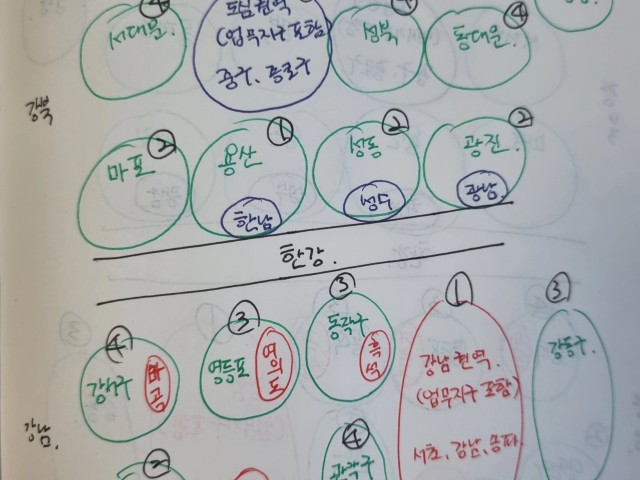 ④
④
서대문.
도심권역
(업무지구 포함)
중구, 종로구
성북
동대문.
강북
②
마포
①
용산
한남
②
성동
성수
②
광진.
광남.
한강.
④
강서구
마곡
③
영등포
여의도
③
동작구
흑석
①
강남권역.
(업무지구 포함)
서초, 강남, 송파.
③
강동구.
강남.
②
④
관악구